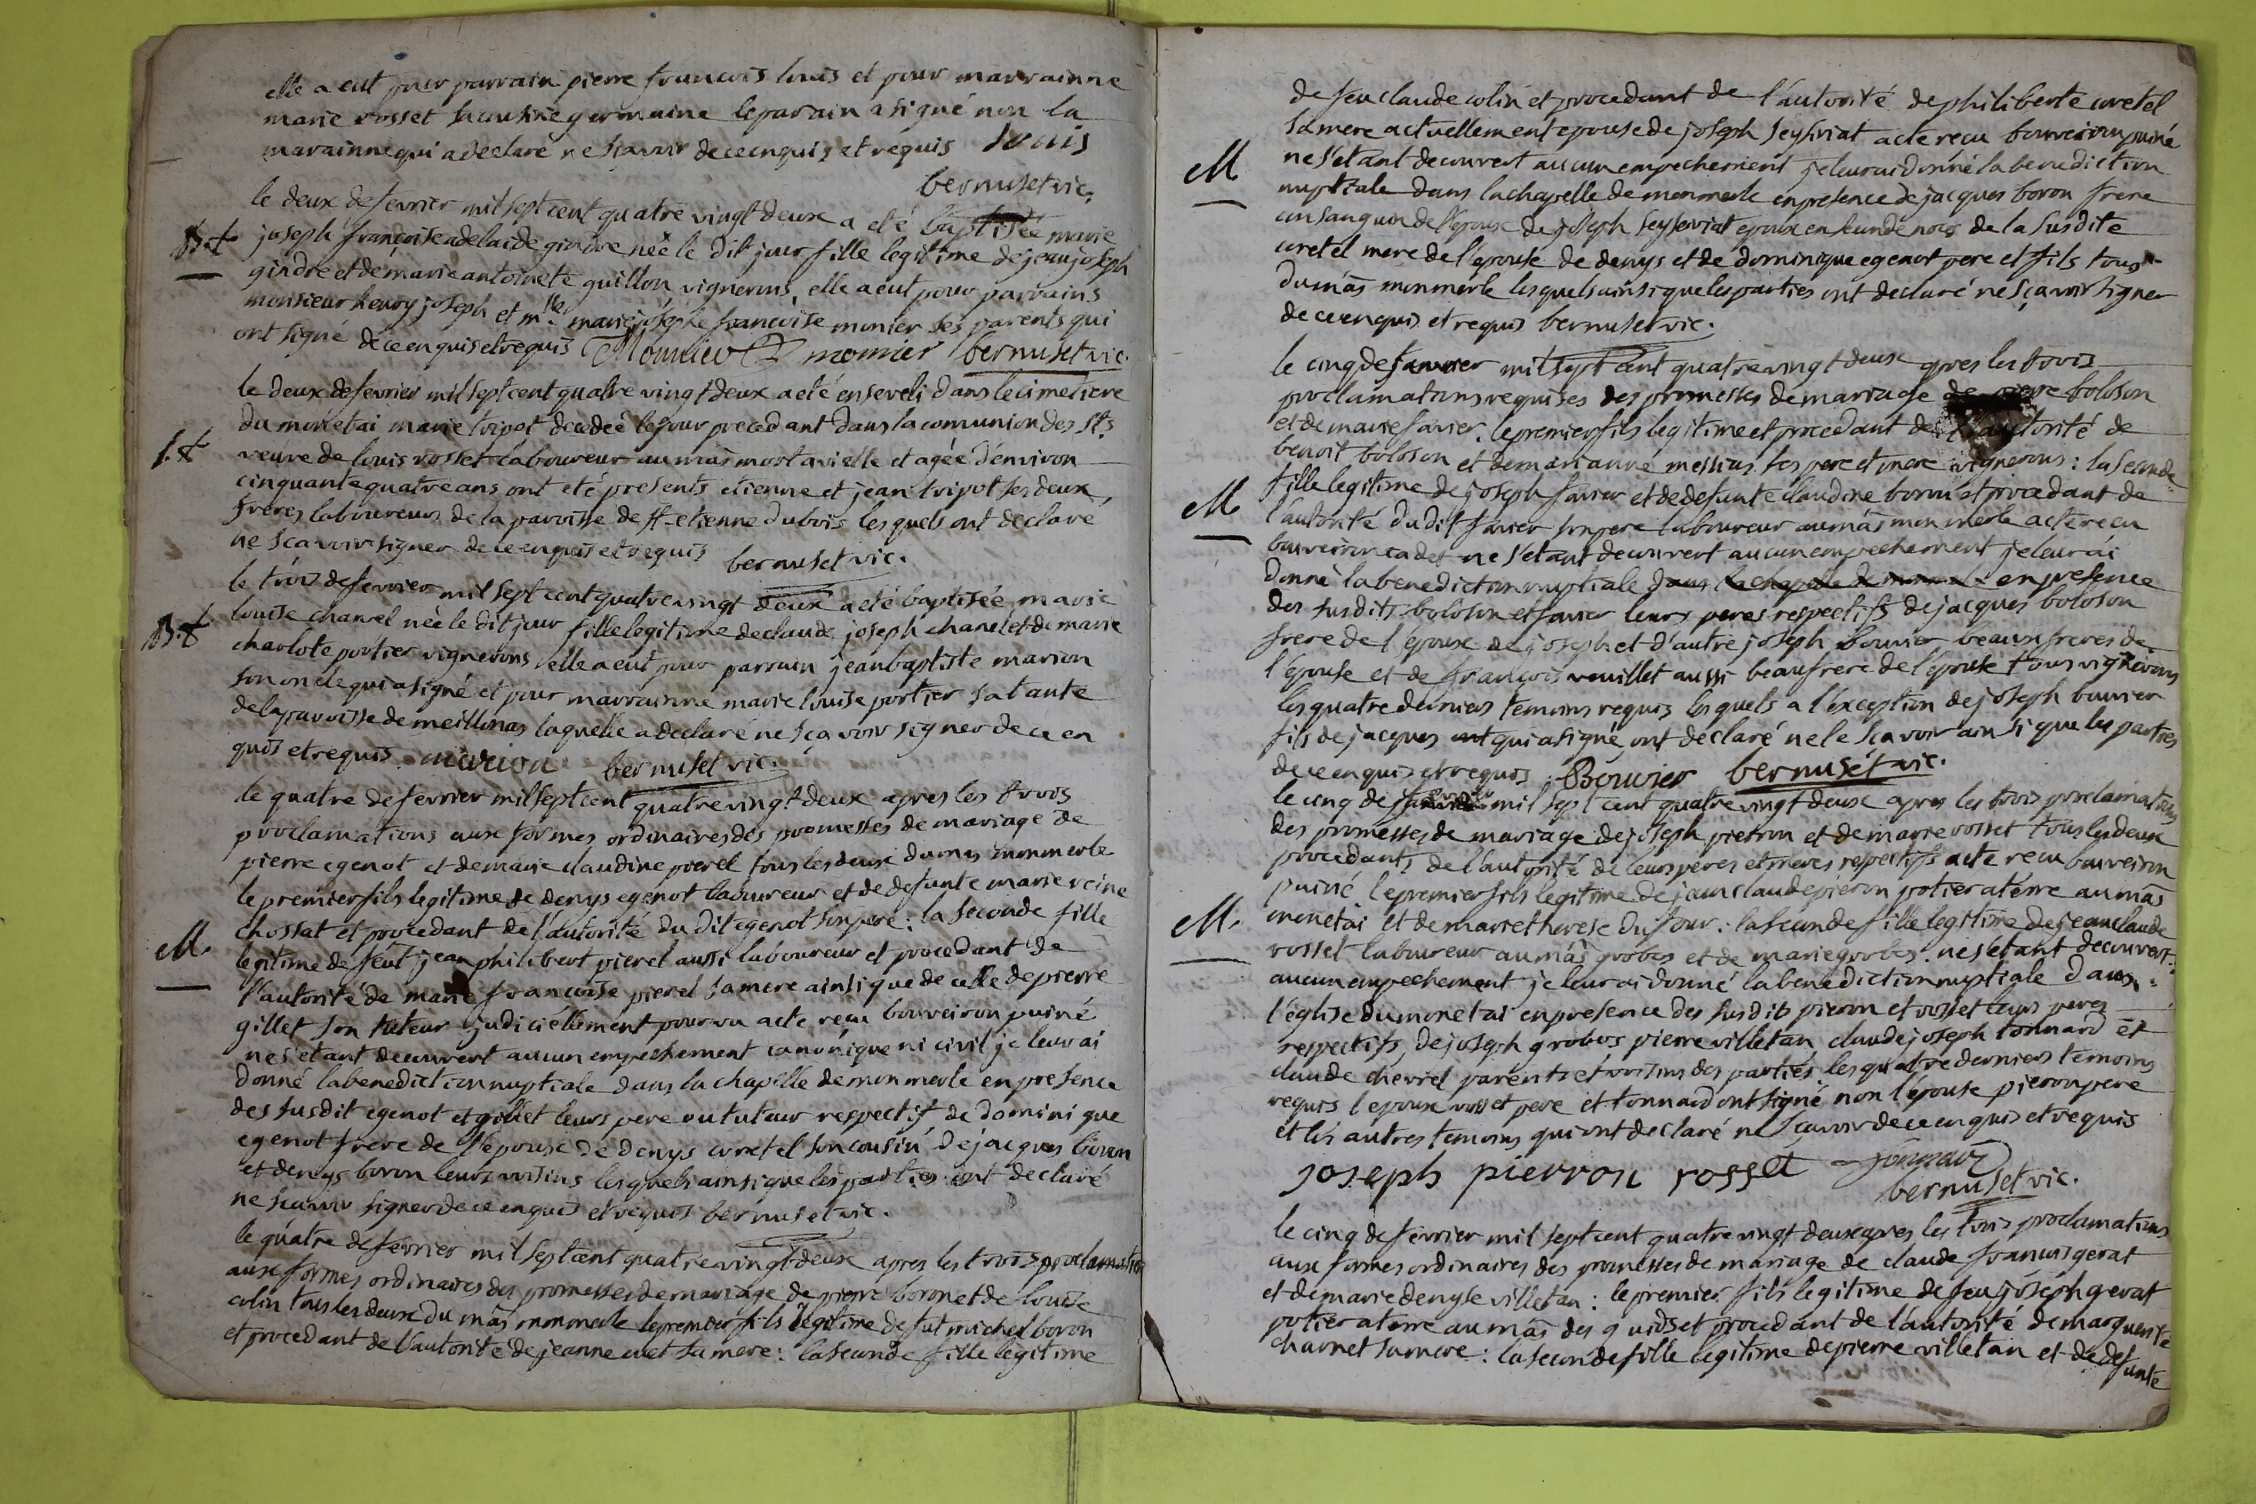 elle a eut pour parrain pierre francois louis et pour marrainne
marie rosset sa cousine germaine le parain a signé non la
marainne qui a declaré ne scavoir de ce enquis et requis louis
bernuset vic.
le deux de fevrier mil sept cent quatre vingt deux a eté baptisée marie
B.t joseph françoise adelaide gindre neé le dit jour fille legitime de jean joseph
gindre et de marie antoinete guillon vignerons, elle a eut pour parrains
monsieur henry joseph et mlle marie joséphe francoise monier ses parents qui
ont signé de ce enquis et requis Mounier monier bernuset vic.
le deux de fevrier mil sept cent quatre vingt deux a eté enseveli dans le cimetiere
du monetai marie tripot decedeé le jour precedant dans la comunion des sts
S.t veuve de louis rosset laboureur au mas mortaviel elle et ageé d'environ
cinquante quatre ans ont eté presents etienne et jean tripot ses deux
freres laboureurs de la paroisse de st etienne dubois lesquels ont declaré
ne scavoir signer de ce enquis et requis bernuset vic.
le trois de fevrier mil sept cent quatre vingt deux a eté baptisée marie
B.t louise chanel neè le dit jour fille legitime de claude joseph chanel et de marie
charlote portier vignerons elle a eut pour parrain jean baptiste marion
son oncle qui a signé et pour marrainne marie louise portier sa tante
de la paroisse de meillonas laquelle a declaré ne sçavoir signer de ce en
quis et requis marion bernuset vic.
le quatre de fevrier mil sept cent quatre vingt deux apres les trois
proclamations aux formes ordinaires des promesses de mariage de
pierre egenot et de marie claudine pierel tous les deux du mas monmerle
le premier fils legitime de denys egenot laboureur et de defunte marie reine
chossat et procedant de l'autorité du dit egenot son pere: la seconde fille
M. legitime de feut jean philibert pierel aussi laboureur et procedant de
l'autorité de marie francoise pierel sa mere ainsi que de celle de pierre
gillet son tuteur judiciellement pourvu acte reçu bouveiron puiné
ne s'etant decouvert aucun empechement canonique ni civil je leur ai
donné la benediction nuptiale dans la chapelle de monmerle en presence
des susdit egenot et gillet leurs pere ou tuteur respectif de dominique
egenot frere de l'epoux de denys coretel son cousin de jacques boron
et denys boron leurs voisins lesquels ainsi que les parties ont declaré
ne scavoir signer de ce enquis et requis bernuset vic.
le quatre de fevrier mil sept cent quatre vingt deux apres les trois proclamation
aux formes ordinaires des promesses de mariage de pierre boron et de louise
colin tous les deux du mas monmerle le premier fils legitime de fut michel boron
et procedant de l'autorité de jeanne cuet sa mere: la seconde fille legitime
de feu claude colin et procedant de l'autorité de philiberte coretel
sa mere actuellement epouse de joseph seyssiat acte recu bouveiron puiné
M ne s'etant decouvert aucun empechement je leur ai donné la benediction
nuptiale dans la chapelle de monmerle en presence de jacques boron frere
consanguin de l'epoux de joseph seyssiat epoux en seconde noces de la susdite
coretel mere de l'epouse de denys et de dominique egenot pere et fils tous
du mas monmerle lesquels ainsi que les parties ont declaré ne sçavoir signer
de ce enquis et requis bernuset vic.
le cinq de fevrier mil sept cent quatre vingt deux apres les trois
proclamations requises des promesses de mariage de pierre boloson
et de marie favier. le premier fils legitime et procedant de l'autorité de
benoit boloson et de marianne messias ses pere et mere vignerons: la seconde
M fille legitime de joseph favier et de defunte claudine boron et procedant de
l'autorité du dit favier son pere laboureur au mas monmerle acte recu
bouveiron cadet ne s'etant decouvert aucun empechement je leur ai
donné la benediction nuptiale dans la chapelle de monmerle en presence
des susdits boloson et favier leurs peres respectifs de jacques boloson
frere de l'epoux de joseph et d'autre joseph bouvier beaux freres de
l'epouse et de françois vouillet aussi beaufrere de l'epouse tous vignerons
les quatre derniers temoins requis lesquels a l'éxception de joseph bouvier
fils de jacques qui a signé ont declaré ne le scavoir ainsi que les parties
de ce enquis et requis. Bouvier bernuset vic.
le cinq de fevrier mil sept cent quatre vingt deux apres les trois proclamations
des promesses de mariage de joseph pieron et de marie rosset tous les deux
procedants de l'autorité de leurs peres et meres respectifs acte recu bouveiron
puiné le premier fils legitime de jean claude pieron potier a terre au mas
M. monetai et de marie therese dufour: la seconde fille legitime de jean claude
rosset laboureur au mas grobos et de marie grobos. ne s'etant decouvert
aucun empechement je leur ai donné la benediction nuptiale dans
l'église du monetai en presence des susdits pieron et rosset leurs peres
respectifs, de joseph grobos pierre villetan claude joseph tonnard et
claude chevrel parents et voisins des parties. les quatre derniers temoins
requis l'epoux rosset pere et tonnard ont signé non l'epouse pieron pere
et les autres temoins qui ont declaré ne sçavoir de ce enquis et requis
joseph pierron rosset tonnard
bernuset vic.
le cinq de fevrier mil sept cent quatre vingt deux apres les trois proclamations
aux formes ordinaires des promesses de mariage de claude francois gerat
et de marie denyse villetan: le premier fils legitime de feu joséph gerat
potier a terre au mas des quids et procedant de l'autorité de marguerite
charnet sa mere: la seconde fille legitime de pierre villetan et de defunte